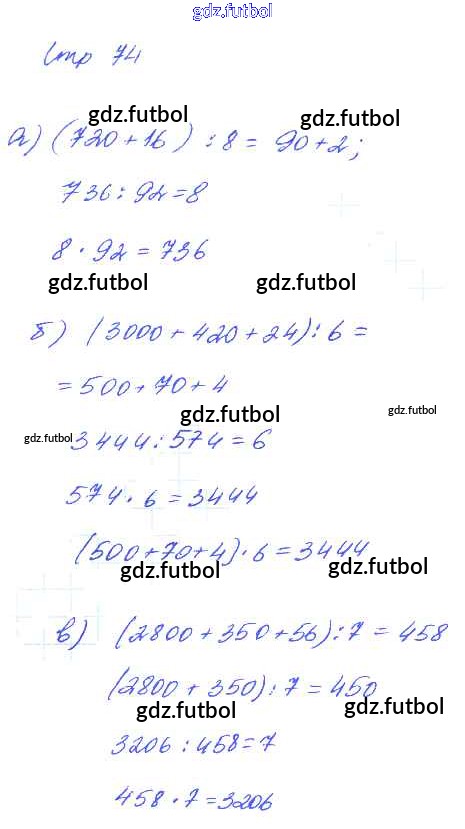 gdz.futbol
Стр 74
gdz.futbol gdz.futbol
а) (720+16) : 8 = 90+2;
736 : 92 = 8
8 · 92 = 736
gdz.futbol gdz.futbol
б) (3000 + 420 + 24) : 6 =
= 500 + 70 + 4
gdz.futbol gdz.futbol
gdz.futbol 3444 : 574 = 6
574 · 6 = 3444
(500+70+4) · 6 = 3444
gdz.futbol gdz.futbol
в) (2800 + 350 + 56) : 7 = 458
(2800 + 350) : 7 = 450
gdz.futbol gdz.futbol
3206 : 458 = 7
458 · 7 = 3206